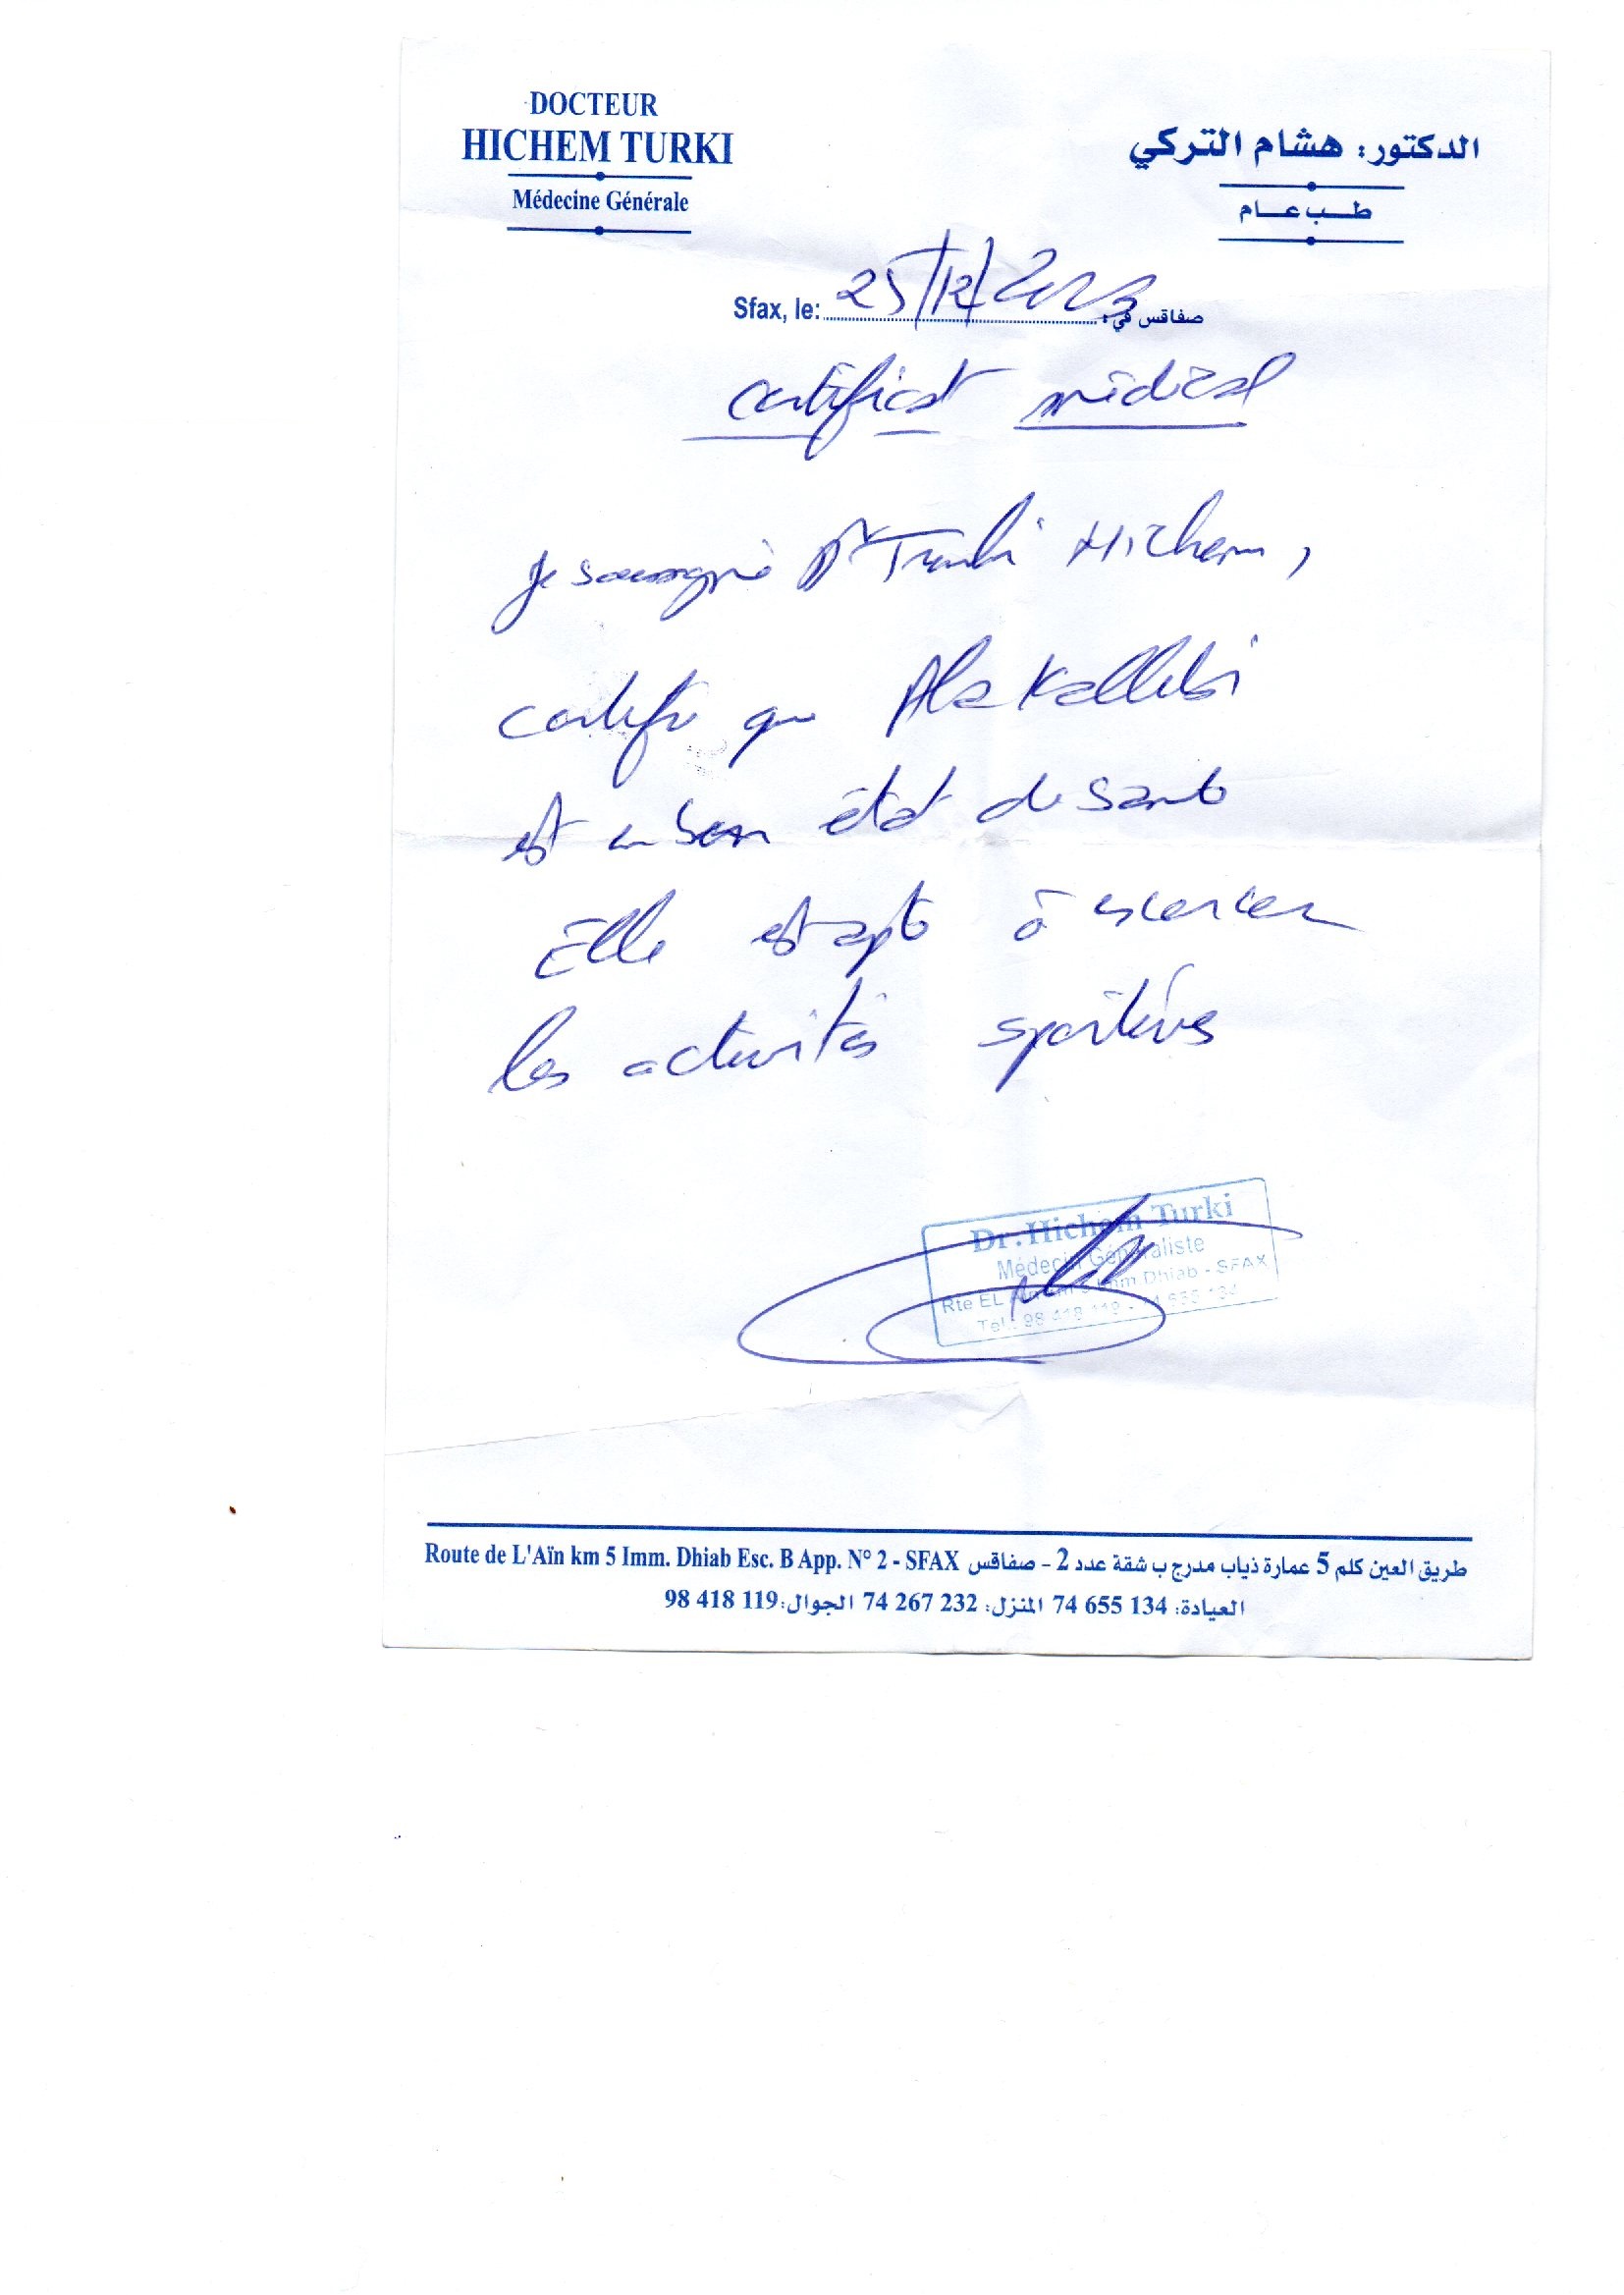 DOCTEUR
HICHEM TURKI
Médecine Générale
الدكتور: هشام التركي
طب عام
Sfax, le: 25/12/2023 صفاقس في:
certificat médical
Je soussigné Dr Turki Hichem,
certifie que Ala Kallebi
est en bon état de santé
Elle est apte à exercer
les activités sportives
Dr. Hichem Turki
Médecin Généraliste
Rte EL Imm Dhiab - SFAX
Tel.: 98 418 119 - 74 655 134
Route de L'Aïn km 5 Imm. Dhiab Esc. B App. N° 2 - SFAX طريق العين كلم 5 عمارة ذياب مدرج ب شقة عدد 2 - صفاقس
العيادة: 134 655 74 المنزل: 232 267 74 الجوال: 119 418 98